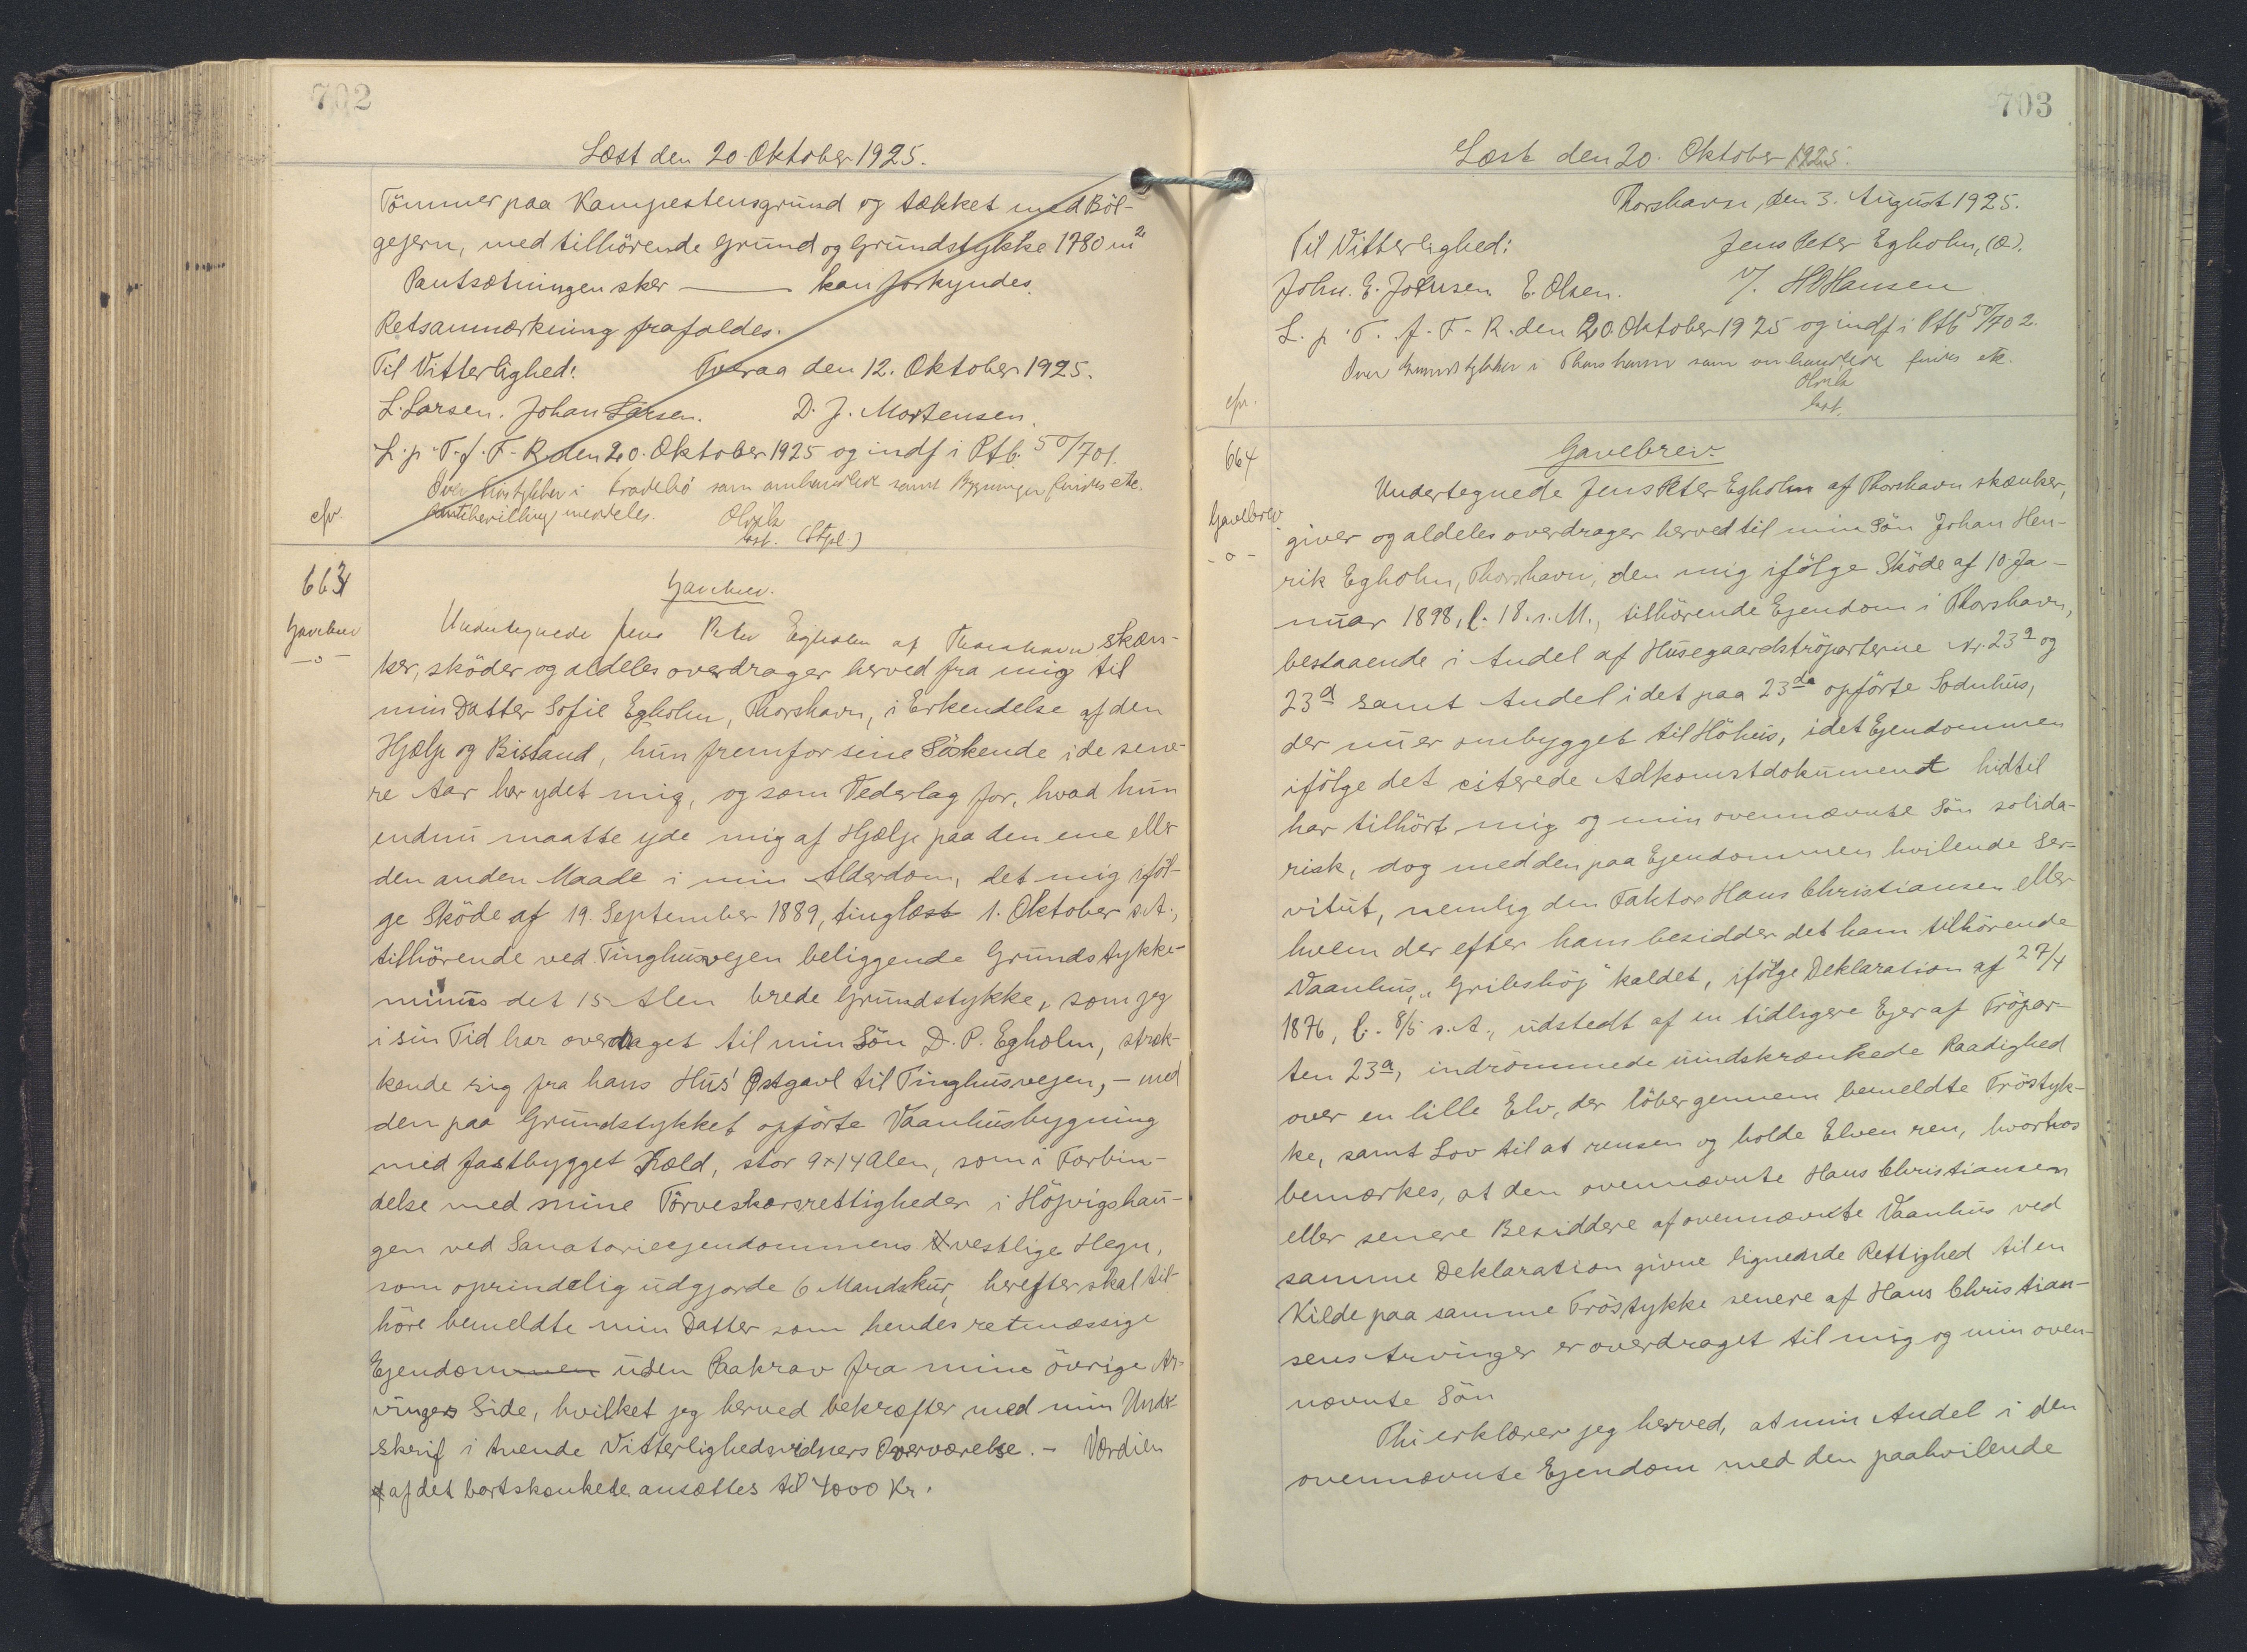 702
Læst den 20. Oktober 1925.
Tömmer paa Kampestensgrund og tækket med Böl-
gejern, med tilhörende Grund og Grundstykke 1780 m2
Pantsætningen sker — kan forkyndes.
Retsanmærkning frafaldes.
Til Vitterlighed: Tveraa den 12. Oktober 1925.
L. Larsen. Johan Larsen. D. J. Mortensen.
L. p. T. f. F-R. den 20. Oktober 1925 og indf i Ptb. 50/701.
Over Grundstykker i som omhandlede samt Bygninger findes etc.
meddeles.
cfr. kst. (Stpl.)
663
Gavebrev
-o-
Gavebrev.
Undertegnede Jens Peter Egholm af Thorshavn skæn-
ker, sköder og aldeles overdrager herved fra mig til
min Datter Sofie Egholm, Thorshavn, i Erkendelse af den
Hjælp og Bistand, hun fremfor sine Söskende i de sene-
re Aar har ydet mig, og som Vederlag for, hvad hun
endnu maatte yde mig af Hjælp paa den ene eller
den anden Maade i min Alderdom, det mig iföl-
ge Sköde af 19. September 1889, tinglæst 1. Oktober s.A.,
tilhörende ved Tinghusvejen beliggende Grundstykke-
minus det 15 Alen brede Grundstykke, som jeg
i sin Tid har overdraget til min Sön D. P. Egholm, stræk-
kende sig fra hans Hus' Østgavl til Tinghusvejen, - med
den paa Grundstykket opförte Vaanhusbygning
med fastbygget Kæld, stor 9x14 Alen, som i Forbin-
delse med mine Törveskærsrettigheder i Höjvigshau-
gen ved Sanatorieejendommens vestlige Hegn,
som oprindelig udgjorde 6 Mandskur, herefter skal til-
höre bemeldte min Datter som hendes retmæssige
Ejendommen uden Paakrav fra mine övrige Ar-
vingers Side, hvilket jeg herved bekræfter med min Under
skrif i tvende Vitterlighedsvidners Overværelse. - Værdien
af det bortskænkede ansættes til 4000 Kr.
703
Læst den 20. Oktober 1925.
Thorshavn, den 3. August 1925.
Til Vitterlighed: Jens Peter Egholm, (o).
John. E. Johnsen E. Olsen. v/. H Hansen
L. p. T. f. F-R. den 20. Oktober 1925 og indf i Ptb 50/702.
Over Grundstykker i Thorshavn som omhandlede findes etc.
kst.
cfr.
664
Gavebrev
-o-
Gavebrev.
Undertegnede Jens Peter Egholm af Thorshavn skænker,
giver og aldeles overdrager herved til min Sön Johan Hen-
rik Egholm, Thorshavn, den mig ifölge Sköde af 10 Ja-
nuar 1898, l. 18. s.M., tilhörende Ejendom i Thorshavn,
bestaaende i Andel af Husegaardströparterne Nr. 23a og
23d samt Andel i det paa 23da opförte Sodnhus,
der nu er ombygget til Höhus, idet Ejendommen
ifölge det citerede Adkomstdokument hidtil
har tilhört mig og min ovennævnte Sön solida-
risk, dog med den paa Ejendommen hvilende Ser-
vitut, nemlig den Faktor Hans Christiansen eller
hvem der efter ham besidder det ham tilhörende
Vaanhus, "Gribshöj" kaldet, ifölge Deklaration af 27/4
1876, l. 8/5 s.A., udstedt af en tidligere Ejer af Tröpar-
ten 23a, indrömmede uindskrænkede Raadighed
over en lille Elv, der löber gennem bemeldte Tröstyk-
ke, samt Lov til at rensen og holde Elven ren, hvorhos
bemærkes, at den ovennævnte Hans Christiansen
eller senere Besiddere af ovennævnte Vaanhus ved
samme Deklaration givne lignende Rettighed til en
Kilde paa samme Tröstykke senere af Hans Christian-
sens Arvinger er overdraget til mig og min oven-
nævnte Sön
Thi erklærer jeg herved, at min Andel i den
ovennævnte Ejendom med den paahvilende